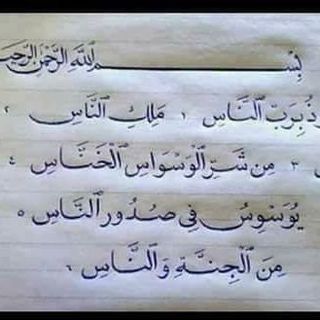 بِسْمِ اللَّهِ الرَّحْمَٰنِ الرَّحِيمِ
ذُ بِرَبِّ ٱلنَّاسِ ١ مَلِكِ ٱلنَّاسِ ٢
٣ مِن شَرِّ ٱلْوَسْوَاسِ ٱلْخَنَّاسِ ٤
يُوَسْوِسُ فِي صُدُورِ ٱلنَّاسِ ٥
مِنَ ٱلْجِنَّةِ وَٱلنَّاسِ ٦